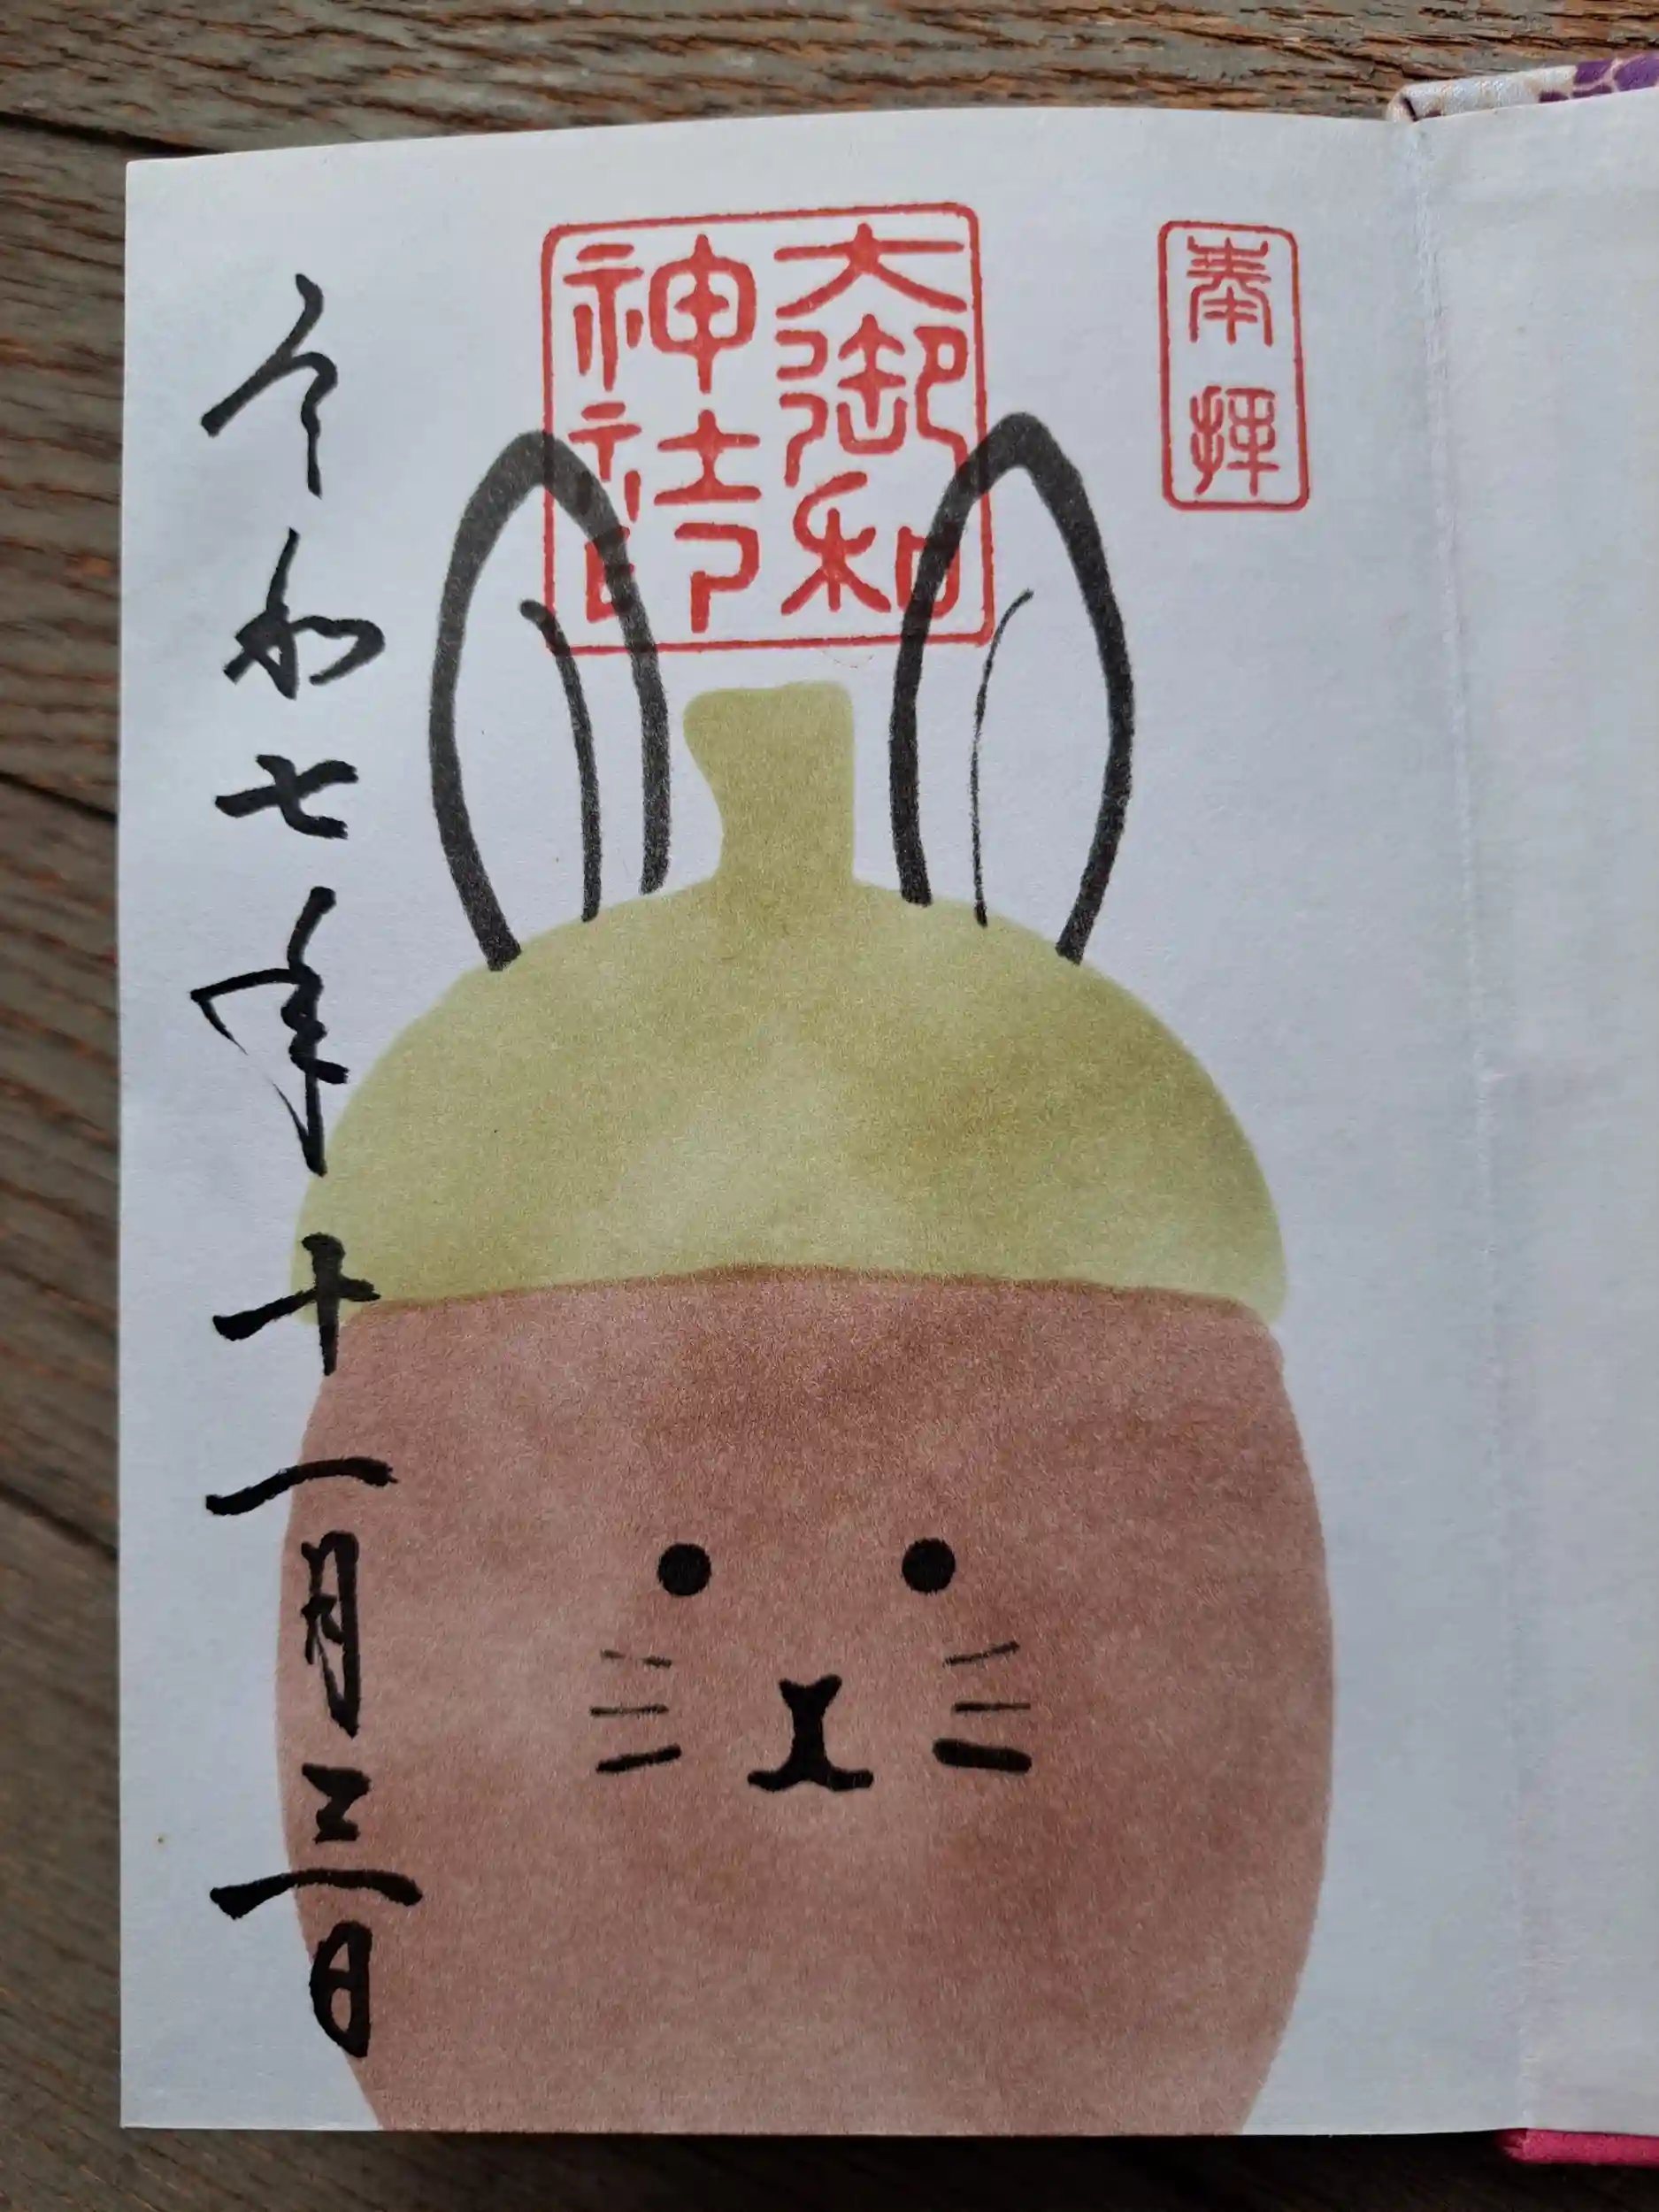 奉拝
大御和
神社印
令和七年十一月三日